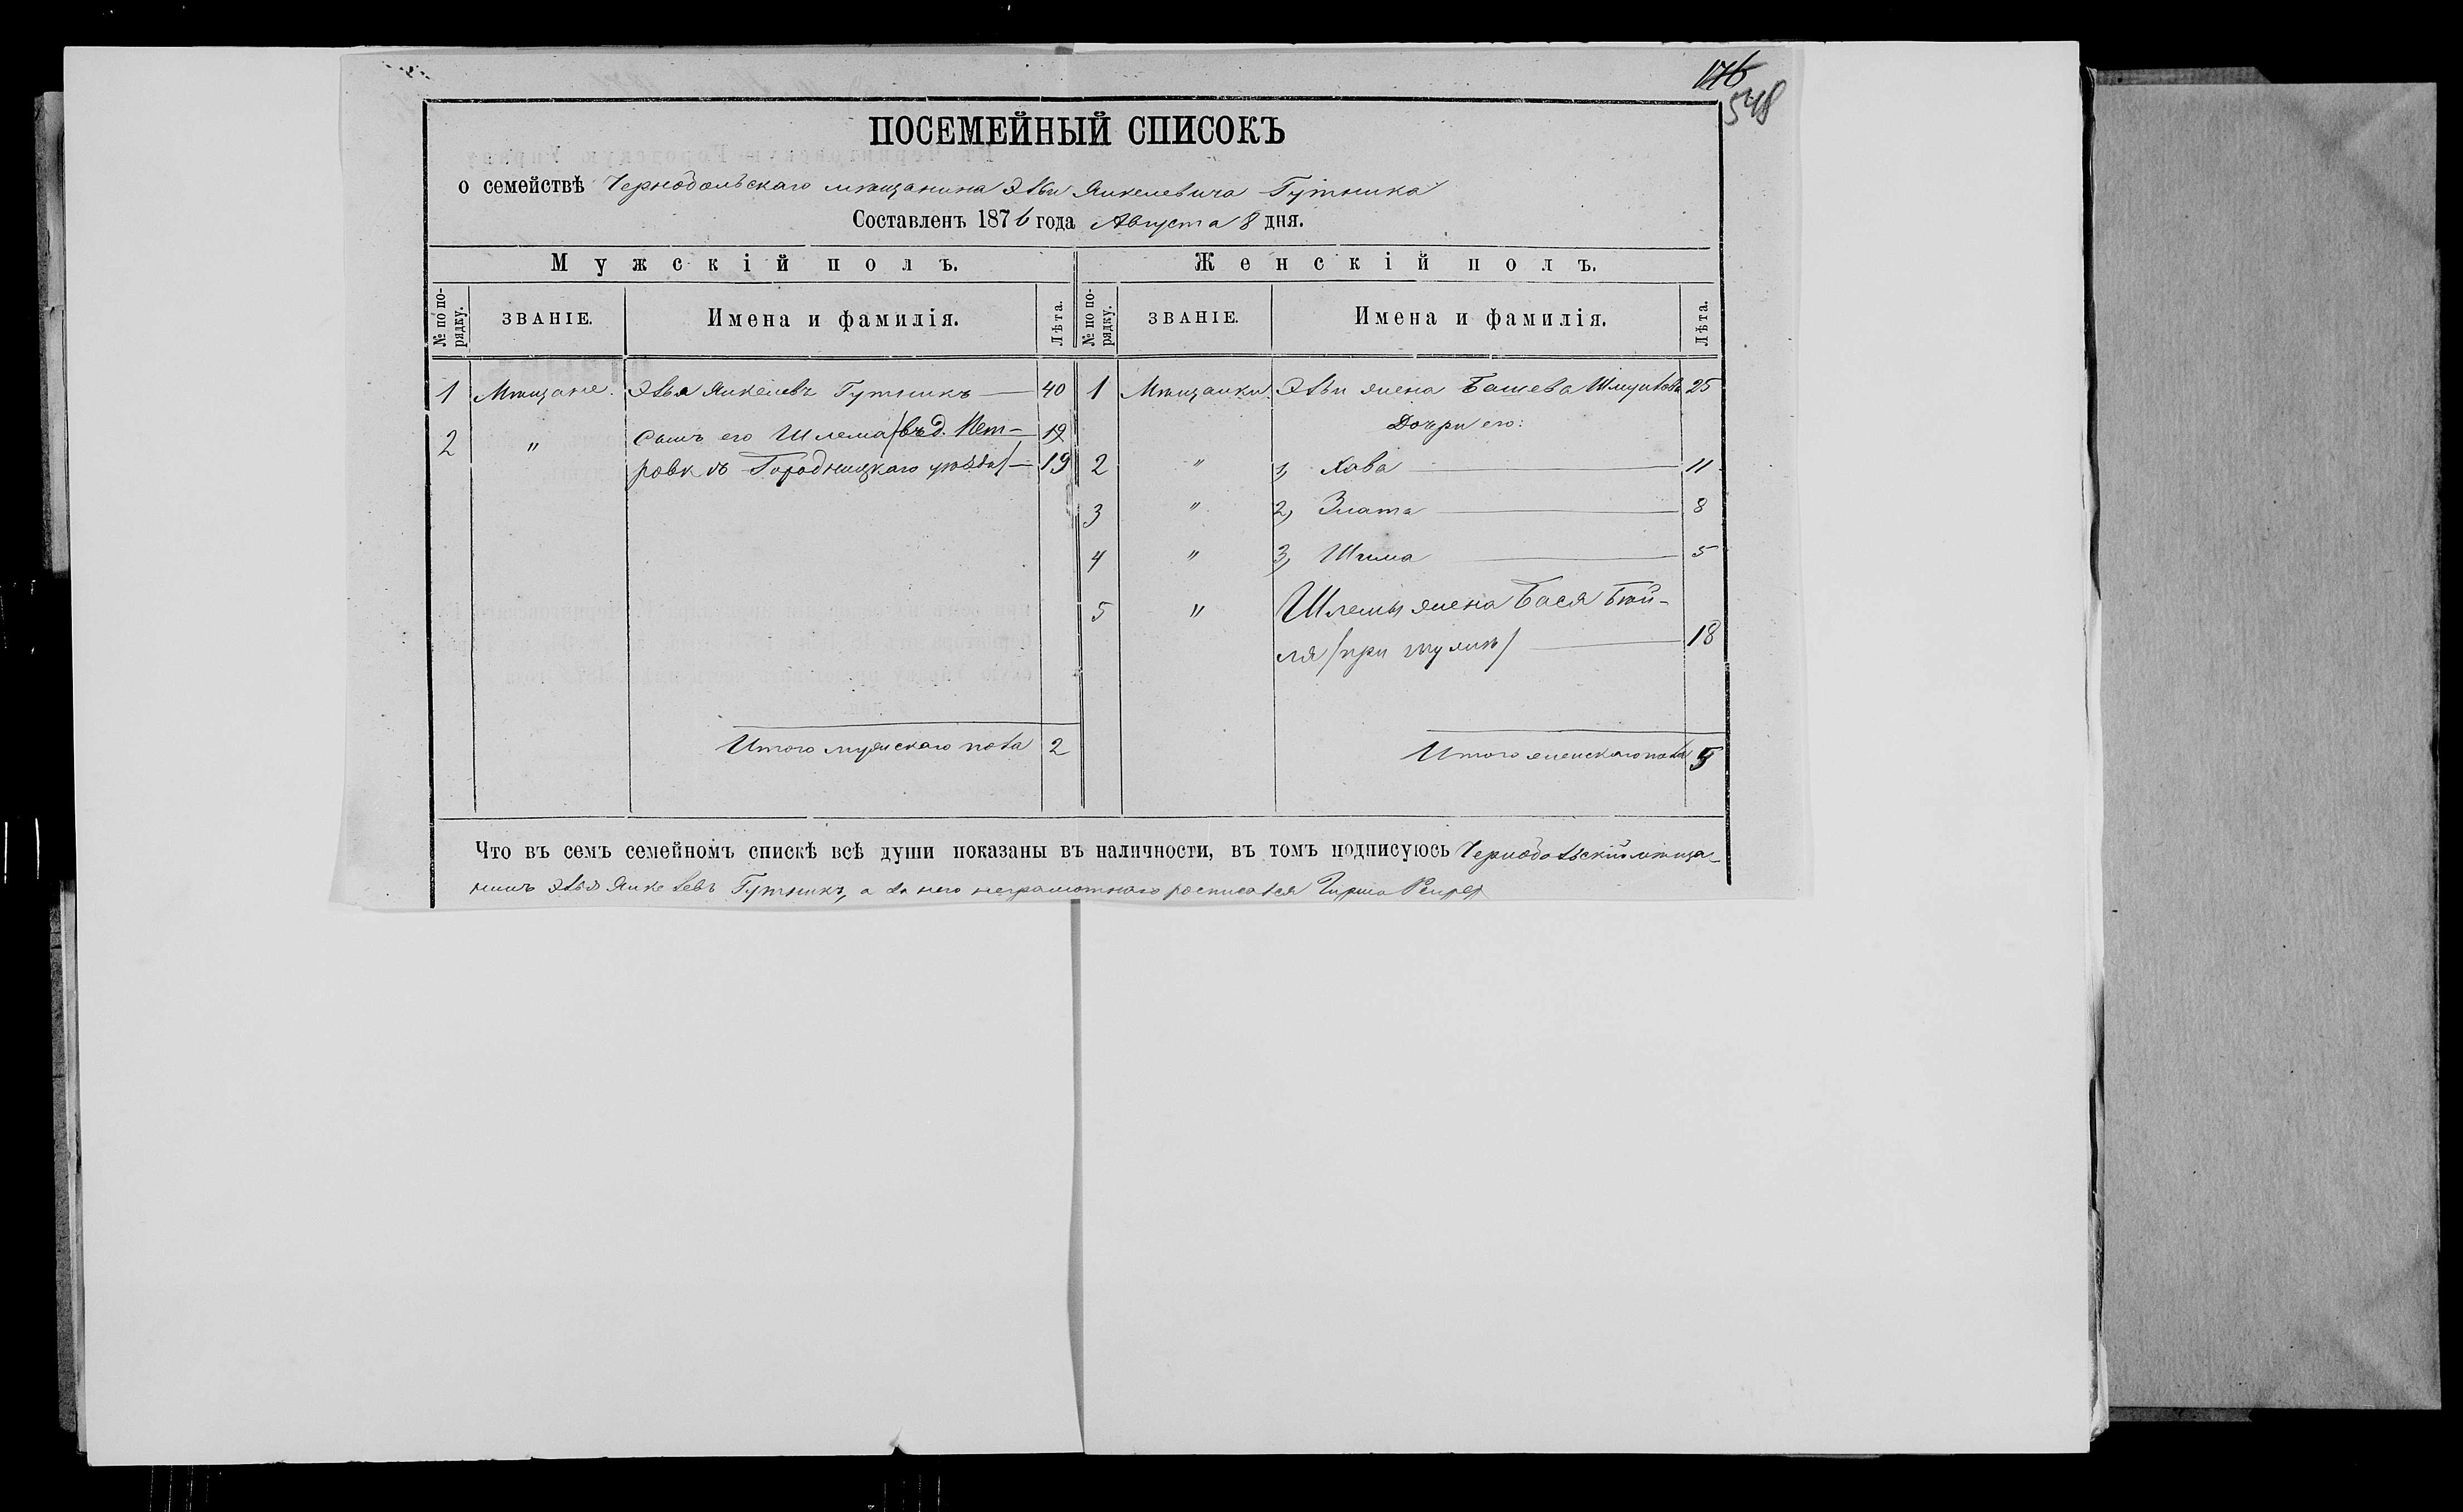 176
548
ПОСЕМЕЙНЫЙ СПИСОКЪ
о семействѣ Чернобольскаго мѣщанина Эльи Янкелевича Гутника
Составленъ 1876 года Августа 8 дня.
Мужскій полъ. Женскій полъ.
№ по порядку. ЗВАНІЕ. Имена и фамилія. Лѣта. № по порядку. ЗВАНІЕ. Имена и фамилія. Лѣта.
1 Мѣщане. Элья Янкелевъ Гутникъ — 40
2 " Сынъ его Шлема /въ д. Пет- 19
ровкѣ Городницкаго уѣзда/ — 19
Итого мужскаго пола 2
1 Мѣщанки. Эльи жена Башева Шмулова 25
Дочери его:
2 " 1, Хава 11
3 " 2, Злата 8
4 " 3, Шима 5
5 " Шлемы жена Бася Бей-
ля /при мужѣ/ 18
Итого женскаго пола 5
Что въ семъ семейномъ спискѣ всѣ души показаны въ наличности, въ томъ подписуюсь Чернобольскій мѣща-
нинъ Элья Янкелевъ Гутникъ, а за него неграмотнаго росписался Гирша